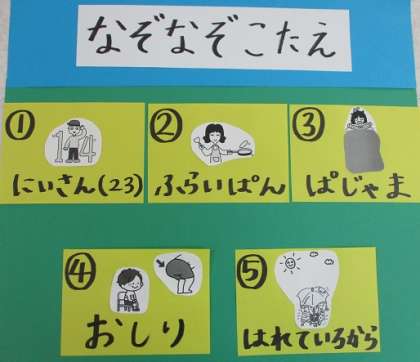 なぞなぞこたえ
①
にいさん(23)
14
②
ふらいぱん
③
ぱじゃま
④
おしり
⑤
はれているから